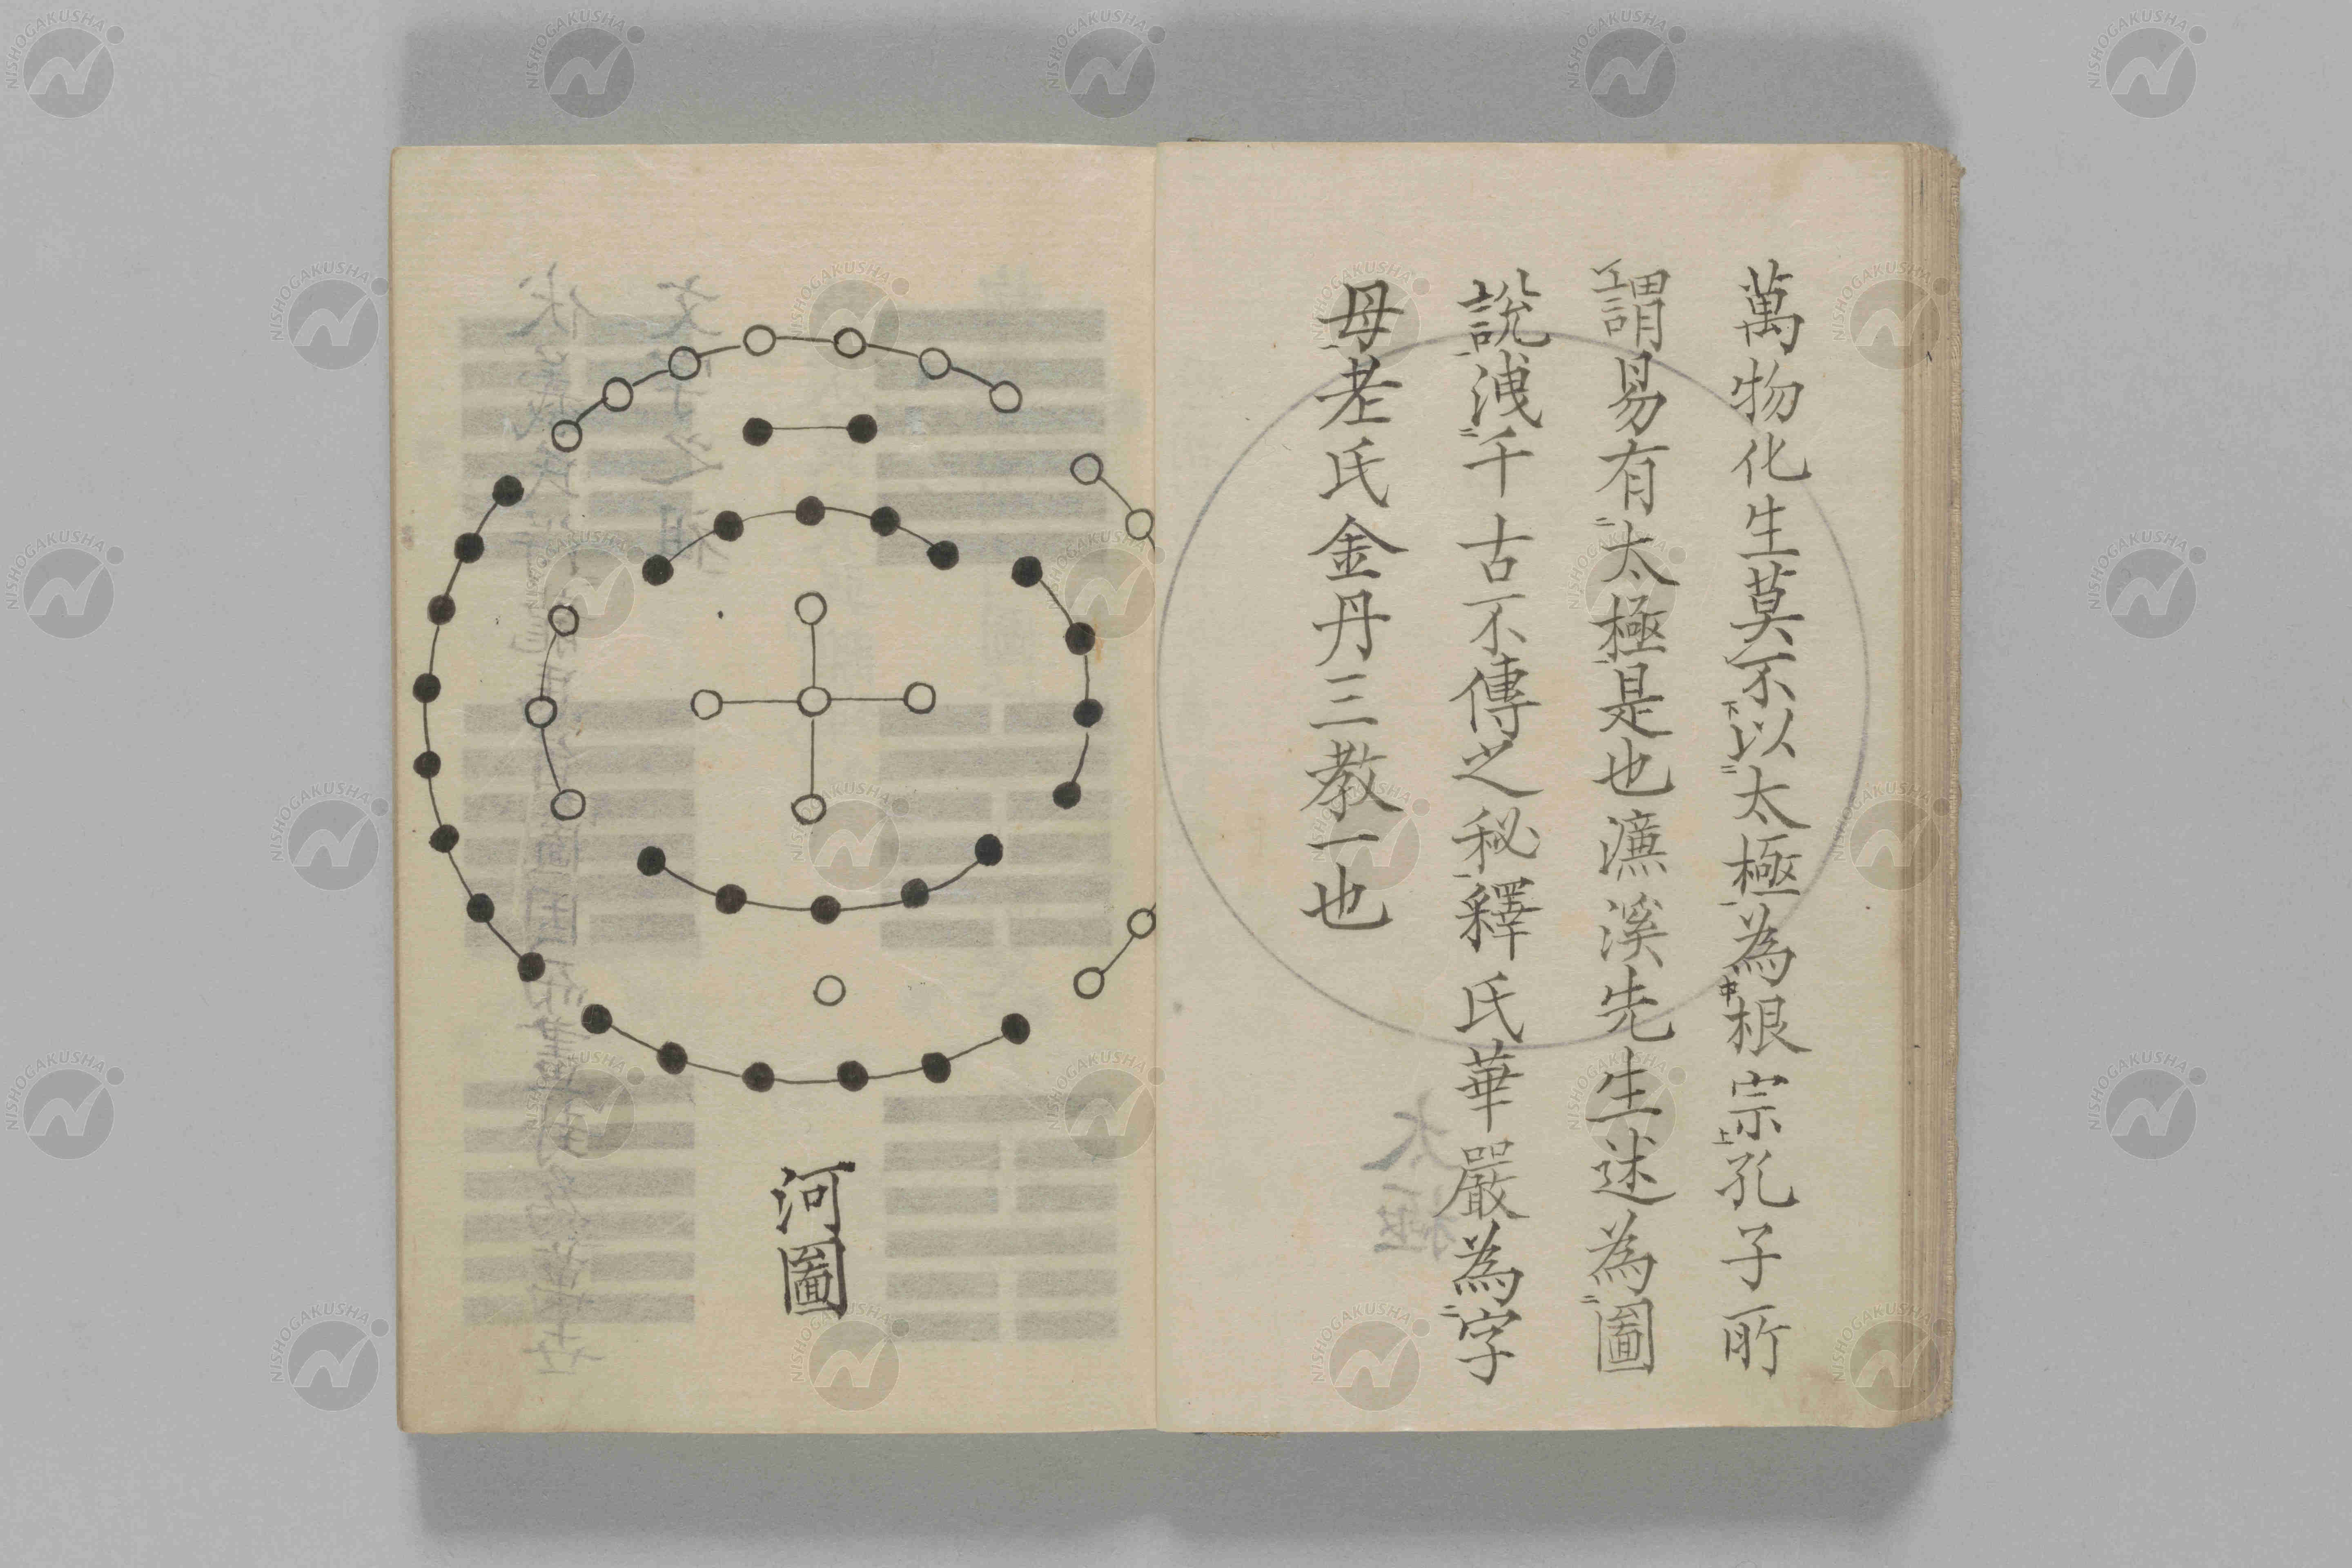 萬物化生莫不以太極為根宗孔子所
謂易有太極是也濂溪先生述為圖
說洩千古不傳之秘釋氏華嚴為字
母老氏金丹三教一也
河圖